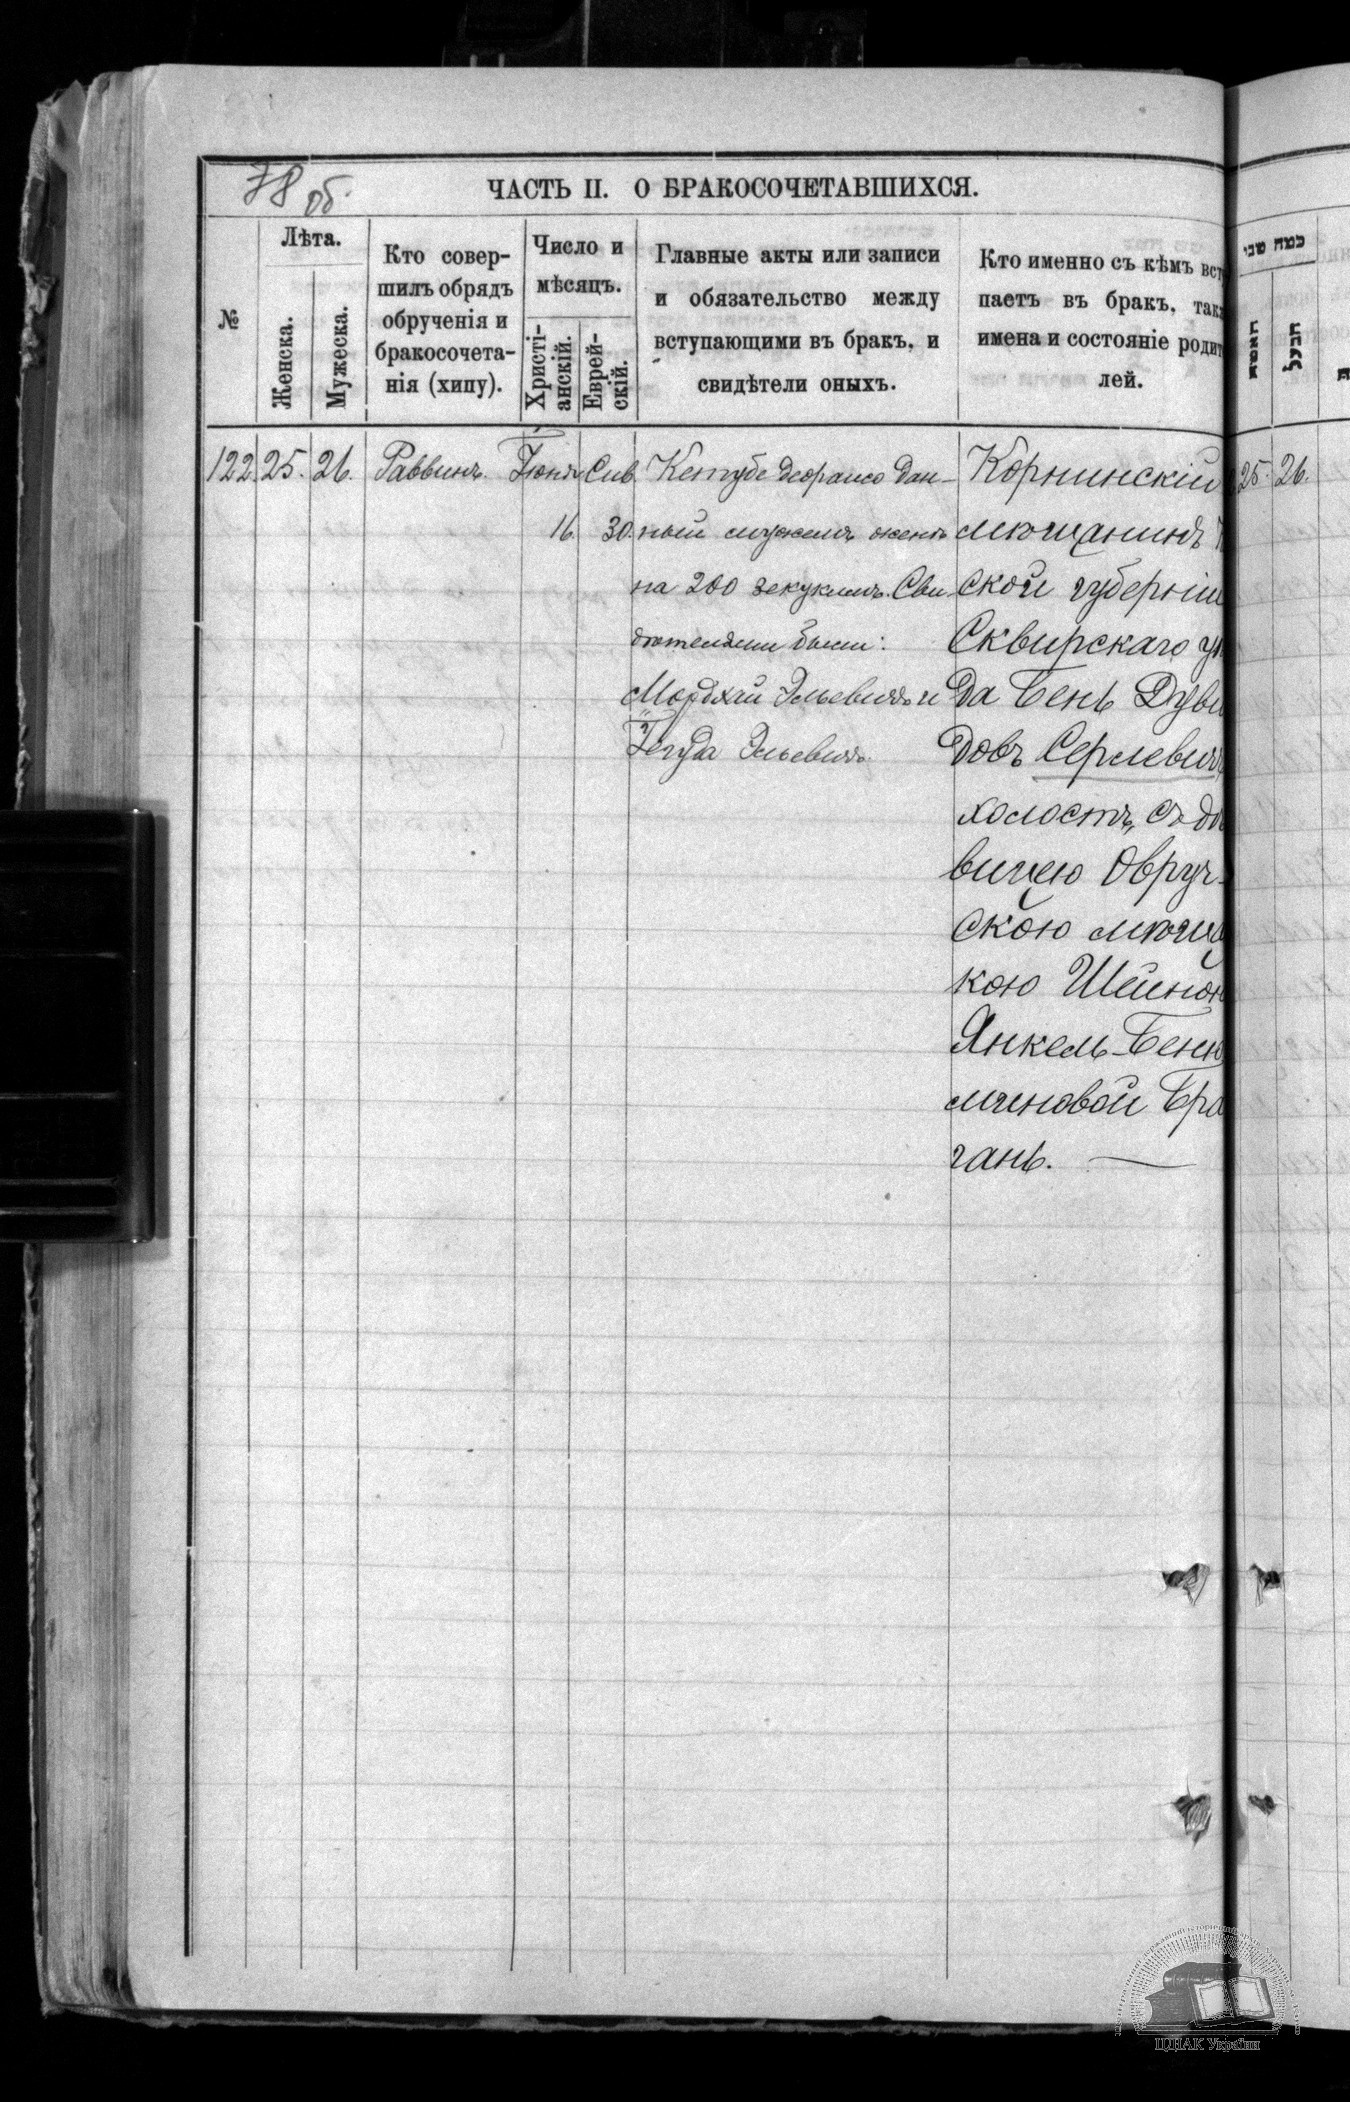 78 об.
ЧАСТЬ II. О БРАКОСОЧЕТАВШИХСЯ.
№
Лѣта.
Женска.
Мужеска.
Кто совер-
шилъ обрядъ
обрученія и
бракосочета-
нія (хипу).
Число и
мѣсяцъ.
Христі-
анскій.
Еврей-
скій.
Главные акты или записи
и обязательство между
вступающими въ бракъ, и
свидѣтели оныхъ.
Кто именно съ кѣмъ вст
паетъ въ бракъ, так
имена и состояніе родит
лей.
122. 25. 26. Раввинъ. Іюня 16. Сив. 30.
Кетубе деораисо дан-
ный мужемъ женѣ
на 200 зекукимъ. Сви-
дѣтелями были:
Мордхай Эльевичъ и
Іегуда Эльевичъ.
Корнинскій
мѣщанинъ
ской губерніи
Сквирскаго уѣ
да Бень Дуви
довъ Серлевич
холостъ, съ дѣ
вицею Овруч-
скою мѣща
кою Шейною
Янкель-Беню
миновой Бра
гань.
כמה שני
האשה
הבעל
25. 26.
ЦДІАК України